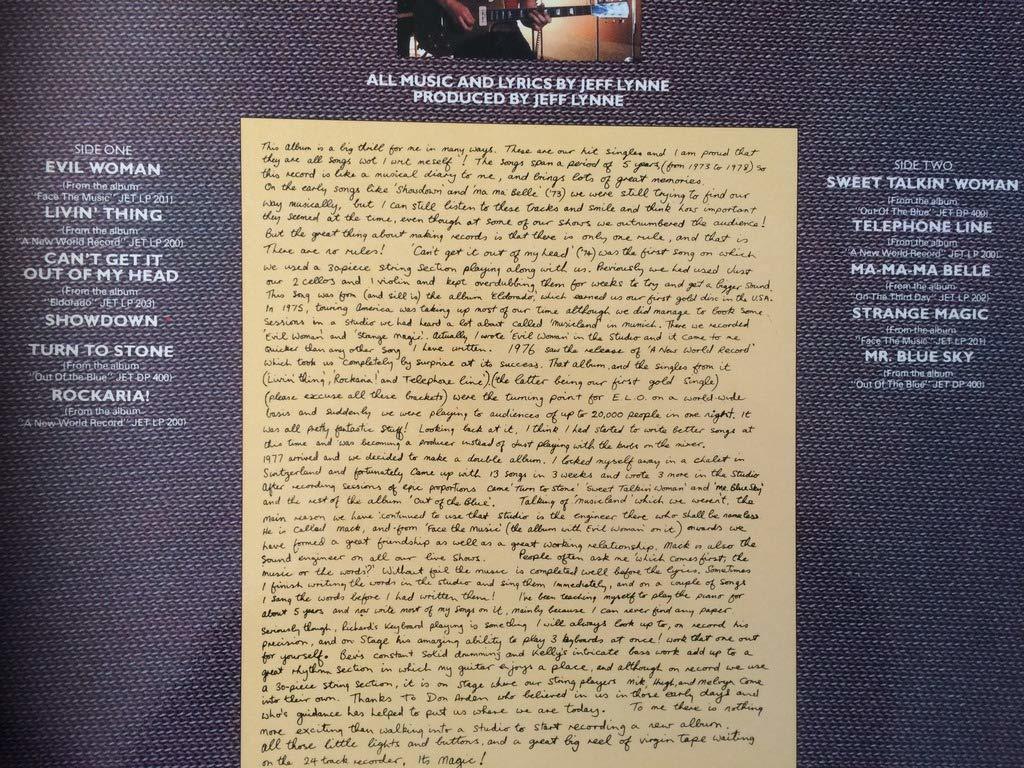 ALL MUSIC AND LYRICS BY JEFF LYNNE
PRODUCED BY JEFF LYNNE
SIDE ONE
EVIL WOMAN
(From the album
"Face The Music" JET LP 201)
LIVIN' THING
(From the album
"A New World Record" JET LP 200)
CAN'T GET IT
OUT OF MY HEAD
(From the album
"Eldorado" JET LP 203)
SHOWDOWN
TURN TO STONE
(From the album
"Out Of the Blue" JET DP 400)
ROCKARIA!
(From the album
"A New World Record" JET LP 200)
This album is a big thrill for me in many ways. These are our hit singles and I am proud that
they are all songs wot I writ meself! The songs span a period of 5 years, (from 1973 to 1978) so
this record is like a musical diary to me, and brings lots of great memories.
On the early songs like 'Showdown' and 'ma ma Belle' ('73) we were still trying to find our
way musically, but I can still listen to these tracks and smile and think how important
they seemed at the time, even though at some of our shows we outnumbered the audience!
But the great thing about making records is that there is only one rule, and that is
There are no rules! 'Can't get it out of my head' ('74) was the first song on which
we used a 30 piece string section playing along with us. Previously we had used just
our 2 cellos and 1 violin and kept overdubbing them for weeks to try and get a bigger sound.
This song was from (and still is) the album 'Eldorado', which earned us our first gold disc in the U.S.A.
In 1975, touring America was taking up most of our time although we did manage to book some
sessions in a studio we had heard a lot about called 'musicland' in munich. There we recorded
'Evil Woman' and 'Strange Magic'. Actually I wrote 'Evil Woman' in the studio and it came to me
quicker than any other song I have written. 1976 saw the release of 'A New World Record'
which took us completely by surprise at its success. That album, and the singles from it
(Livin' thing, Rockaria! and Telephone line), (the latter being our first gold single)
(please excuse all these brackets) were the turning point for E.L.O. on a world-wide
basis and suddenly we were playing to audiences of up to 20,000 people in one night. It
was all pretty fantastic stuff! Looking back at it, I think I had started to write better songs at
this time and was becoming a producer instead of just playing with the knobs on the mixer.
1977 arrived and we decided to make a double album. I locked myself away in a chalet in
Switzerland and fortunately came up with 13 songs in 3 weeks and wrote 3 more in the studio
After recording sessions of epic proportions came 'Turn to Stone' 'Sweet Talkin Woman' and 'Mr Blue Sky'
and the rest of the album 'Out of the Blue'. Talking of 'musicland' which we weren't, the
main reason we have continued to use that studio is the engineer there who shall be nameless
He is called Mack, and from 'Face the Music' (the album with Evil Woman on it) onwards we
have formed a great friendship as well as a great working relationship. Mack is also the
sound engineer on all our live shows. People often ask me 'which comes first, the
music or the words?' Without fail the music is completed well before the lyrics. Sometimes
I finish writing the words in the studio and sing them immediately, and on a couple of songs
I sang the words before I had written them! I've been teaching myself to play the piano for
about 5 years and now write most of my songs on it, mainly because I can never find any paper.
Seriously though, Richard's keyboard playing is something I will always look up to, on record his
precision, and on stage his amazing ability to play 3 keyboards at once! work that one out
for yourself. Bev's constant solid drumming and Kelly's intricate bass work add up to a
great rhythm section in which my guitar enjoys a place, and although on record we use
a 30-piece string section, it is on stage where our string players Mik, Hugh, and Melvyn come
into their own. Thanks to Don Arden who believed in us in those early days and
who's guidance has helped to put us where we are today. To me there is nothing
more exciting than walking into a studio to start recording a new album.
all those little lights and buttons, and a great big reel of virgin tape waiting
on the 24 track recorder, Its Magic!
SIDE TWO
SWEET TALKIN' WOMAN
(From the album
"Out Of The Blue" JET DP 400)
TELEPHONE LINE
(From the album
"A New World Record" JET LP 200)
MA-MA-MA BELLE
(From the album
"On The Third Day" JET LP 202)
STRANGE MAGIC
(From the album
"Face The Music" JET LP 201)
MR. BLUE SKY
(From the album
"Out Of The Blue" JET DP 400)